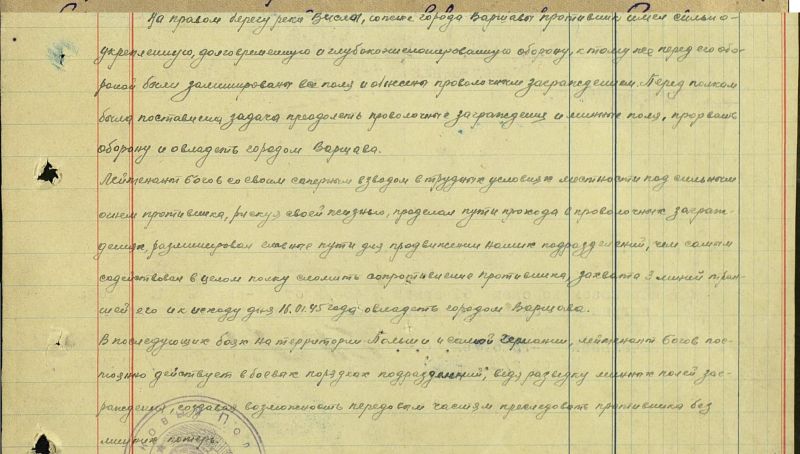 На правом берегу реки Висла, южнее города Варшавы противник имел сильно-
укрепленную, долговременную и глубокоэшелонированную оборону, к тому же перед его обо-
роной были заминированы все поля и обнесены проволочным заграждением. Перед полком
была поставлена задача преодолеть проволочные заграждения и минные поля, прорвать
оборону и овладеть городом Варшава.
Лейтенант Богов со своим саперным взводом в трудных условиях местности под сильным
огнем противника, рискуя своей жизнью, проделал пути прохода в проволочных заграж-
дениях, разминировал главные пути для продвижения наших подразделений, чем самым
содействовал в целом полку сломить сопротивление противника, захвата 3 линий тран-
шей его и к исходу дня 16.01.45 года овладеть городом Варшава.
В последующих боях на территории Польши и самой Германии, лейтенант Богов пос-
тоянно действует в боевых порядках подразделений, ведя разведку минных полей заг-
раждения, создавая возможность передовым частям преследовать противника без
лишних потерь.